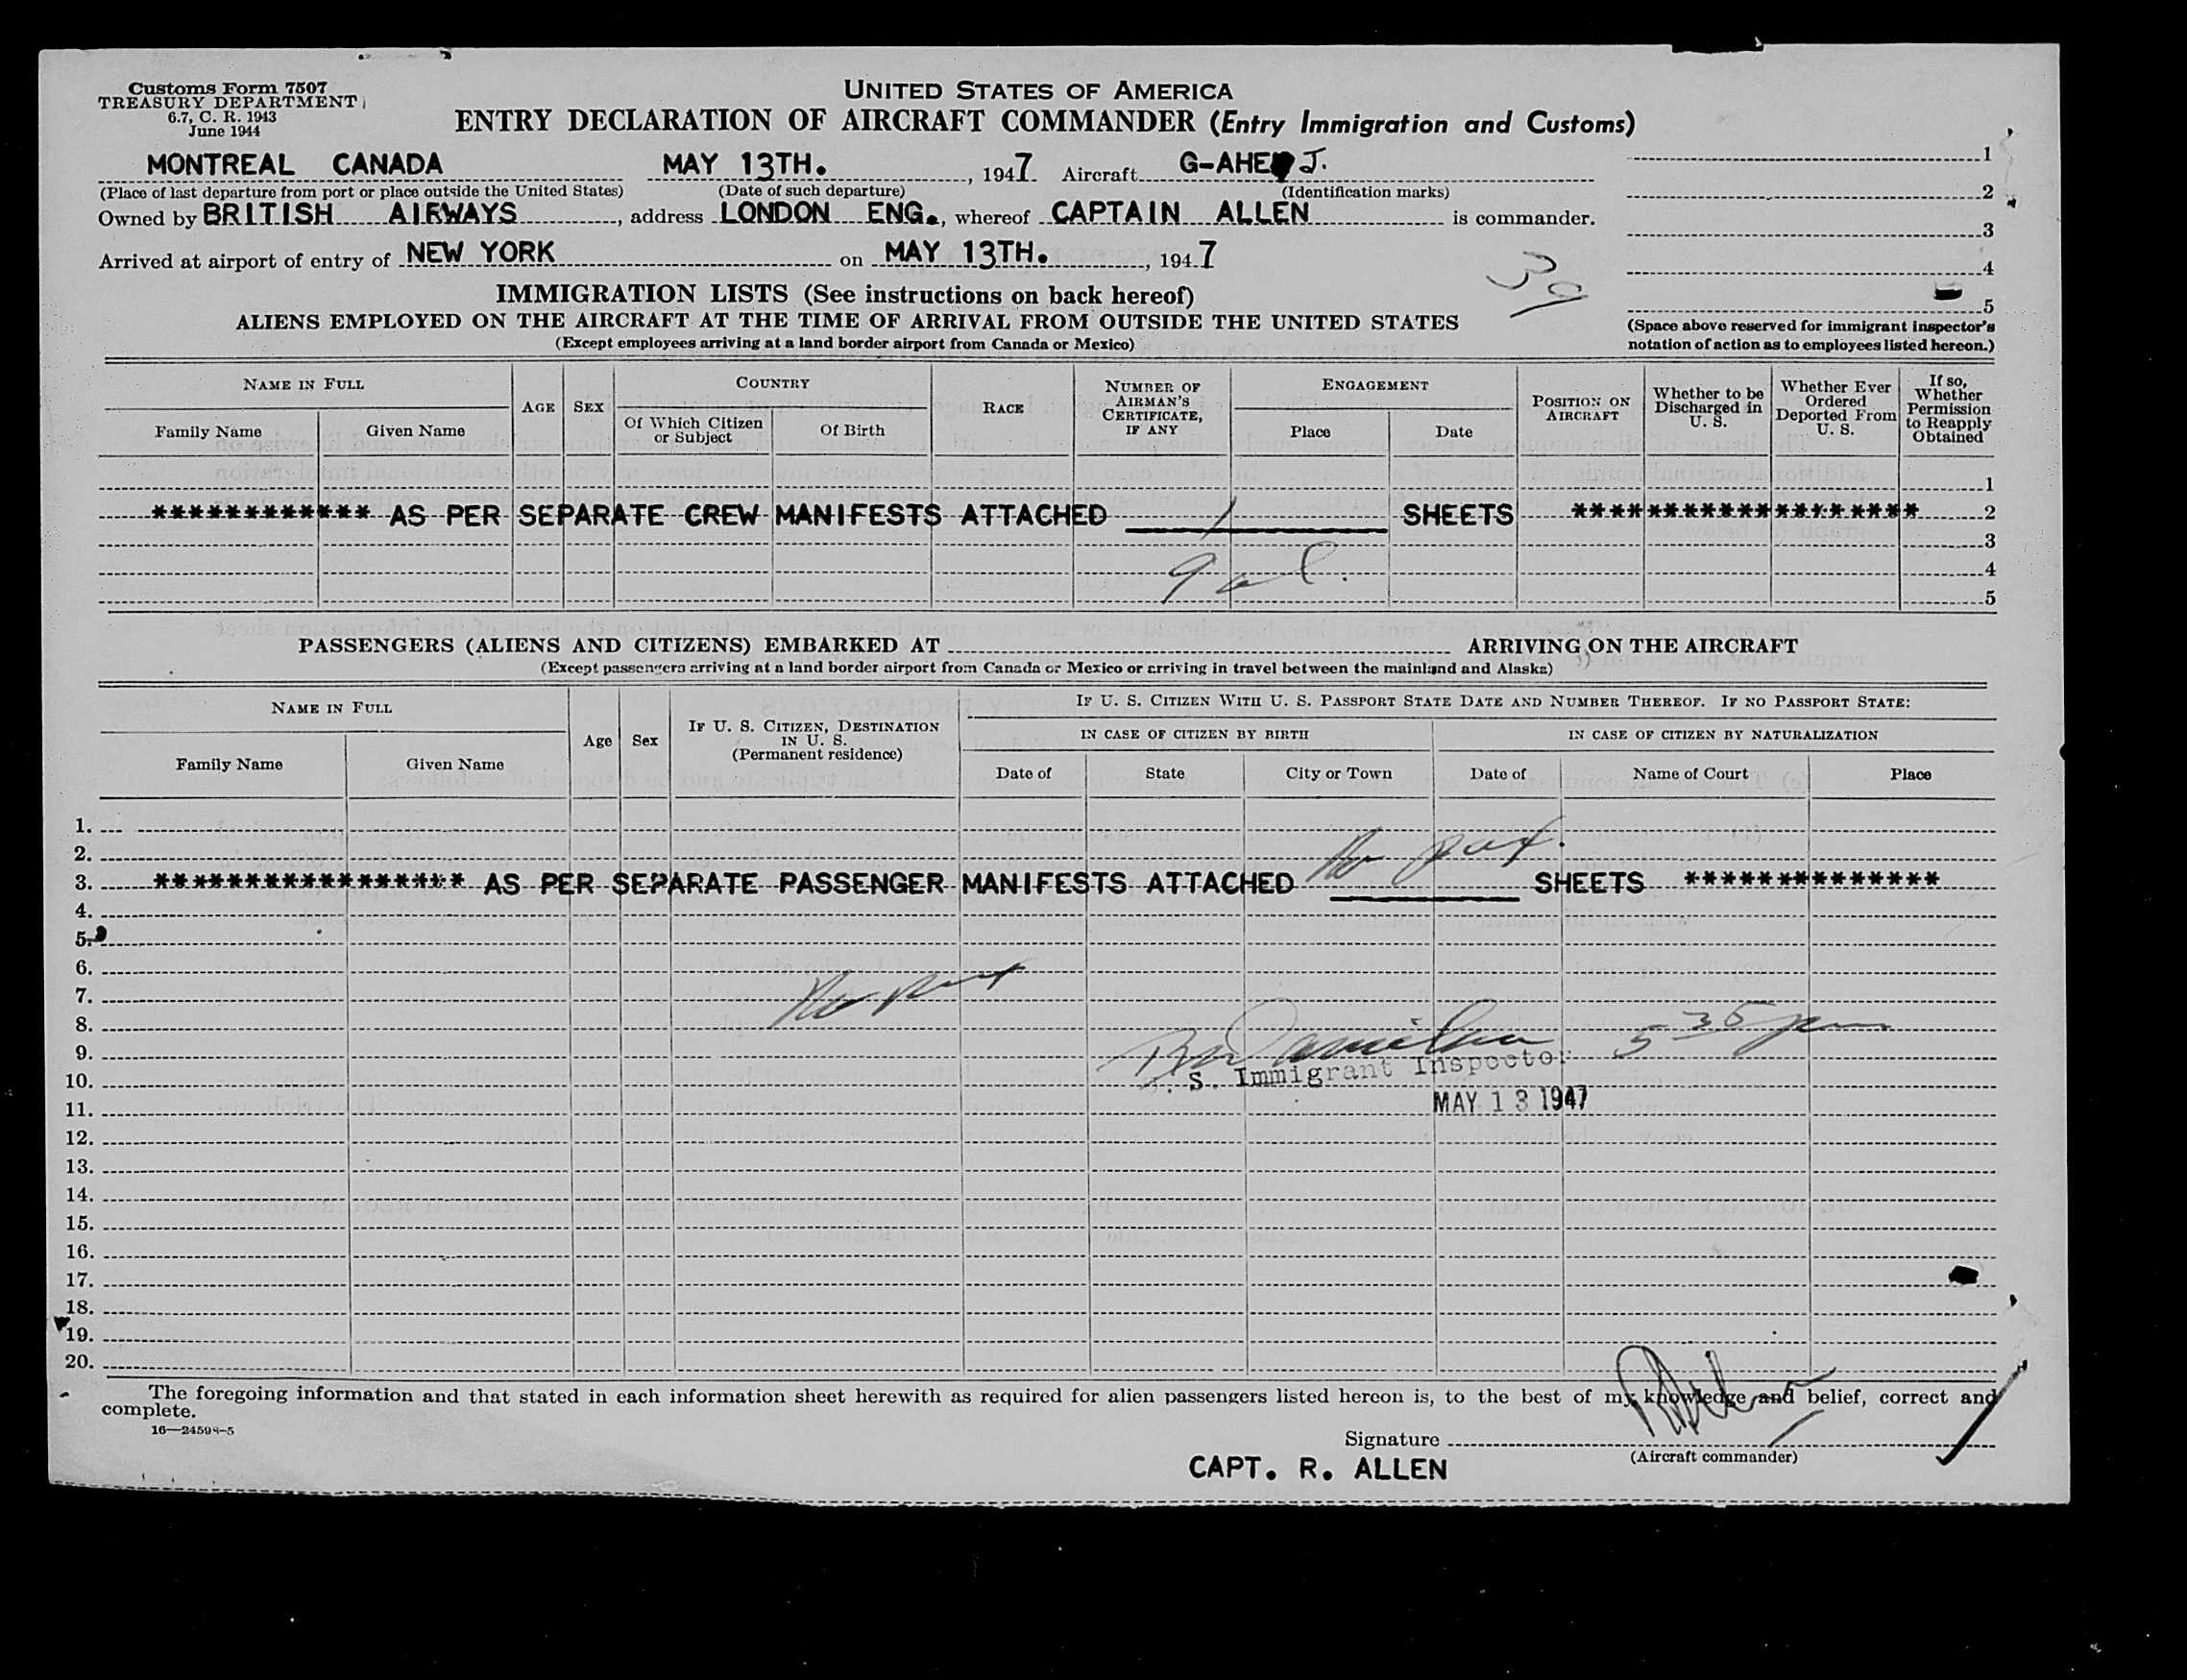 Customs Form 7507
TREASURY DEPARTMENT
6.7, C. R. 1943
June 1944
UNITED STATES OF AMERICA
ENTRY DECLARATION OF AIRCRAFT COMMANDER (Entry Immigration and Customs)
MONTREAL CANADA MAY 13TH. , 1947 Aircraft G-AHE J.
(Place of last departure from port or place outside the United States) (Date of such departure) (Identification marks)
Owned by BRITISH AIRWAYS , address LONDON ENG., whereof CAPTAIN ALLEN is commander.
Arrived at airport of entry of NEW YORK on MAY 13TH. , 1947
39
1
2
3
4
5
(Space above reserved for immigrant inspector's
notation of action as to employees listed hereon.)
IMMIGRATION LISTS (See instructions on back hereof)
ALIENS EMPLOYED ON THE AIRCRAFT AT THE TIME OF ARRIVAL FROM OUTSIDE THE UNITED STATES
(Except employees arriving at a land border airport from Canada or Mexico)
NAME IN FULL
Family Name Given Name
AGE
SEX
COUNTRY
Of Which Citizen or Subject
Of Birth
RACE
NUMBER OF AIRMAN'S CERTIFICATE, IF ANY
ENGAGEMENT
Place Date
POSITION ON AIRCRAFT
Whether to be Discharged in U. S.
Whether Ever Ordered Deported From U. S.
If so, Whether Permission to Reapply Obtained
1
************ AS PER SEPARATE CREW MANIFESTS ATTACHED 1 SHEETS ******************* 2
3
4
5
PASSENGERS (ALIENS AND CITIZENS) EMBARKED AT ARRIVING ON THE AIRCRAFT
(Except passengers arriving at a land border airport from Canada or Mexico or arriving in travel between the mainland and Alaska)
NAME IN FULL
Family Name Given Name
Age
Sex
IF U. S. CITIZEN, DESTINATION IN U. S.
(Permanent residence)
IF U. S. CITIZEN WITH U. S. PASSPORT STATE DATE AND NUMBER THEREOF. IF NO PASSPORT STATE:
IN CASE OF CITIZEN BY BIRTH IN CASE OF CITIZEN BY NATURALIZATION
Date of State City or Town Date of Name of Court Place
1.
2.
No pax.
3. ***************** AS PER SEPARATE PASSENGER MANIFESTS ATTACHED SHEETS **************
4.
5.
6.
7. No pax
8.
5 35 pm
9.
S. Immigrant Inspector
10.
11. MAY 13 1947
12.
13.
14.
15.
16.
17.
18.
19.
20.
The foregoing information and that stated in each information sheet herewith as required for alien passengers listed hereon is, to the best of my knowledge and belief, correct and
complete.
16—24598-5
Signature
(Aircraft commander)
CAPT. R. ALLEN